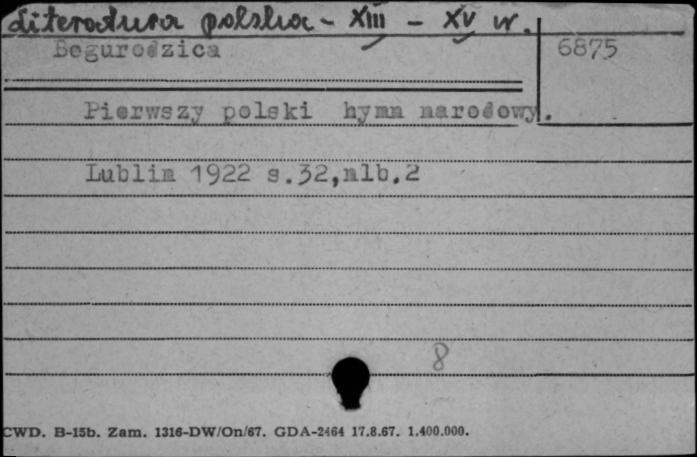 Literatura polska - XIII - XV w.
Bogurodzica 6875
Pierwszy polski hymn narodowy.
Lublin 1922 s.32,nlb.2
8
CWD. B-15b. Zam. 1316-DW/On/67. GDA-2464 17.8.67. 1.400.000.